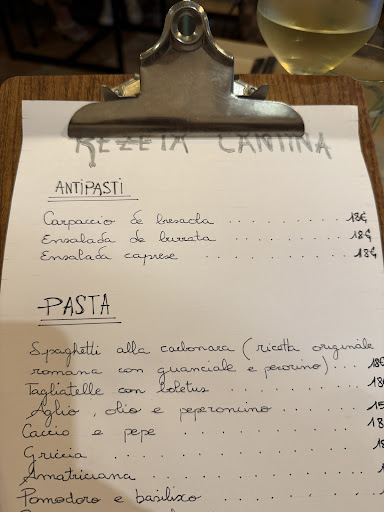 REZETA CANTINA
ANTIPASTI
Carpaccio de bresaola . . . . . . . . . . 18€
Ensalada de burrata . . . . . . . . . . 18€
Ensalada caprese . . . . . . . . . . 18€
PASTA
Spaghetti alla carbonara (ricetta originale
romana con guanciale e pecorino) . . . 18€
Tagliatelle con boletus . . . . . . . . . 18
Aglio, olio e peperoncino . . . . . . . 15
Caccio e pepe . . . . . . . . . . 18
Gricia . . . . . . . . . . . . . 18
Amatriciana . . . . . . . . . . . 1
Pomodoro e basilico . . . . . . . . .